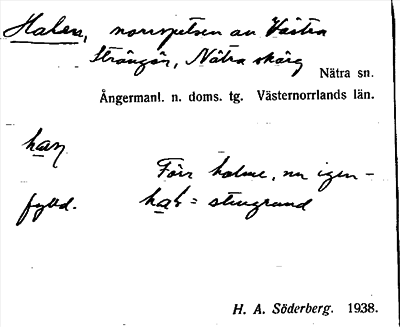 Halen, norrspetsen av Västra
Strängön, Nätra skärg
Nätra sn.
Ångermanl. n. doms. tg. Västernorrlands län.
han
Förr holme, nu igen-
fylld. hal = stengrund
H. A. Söderberg. 1938.